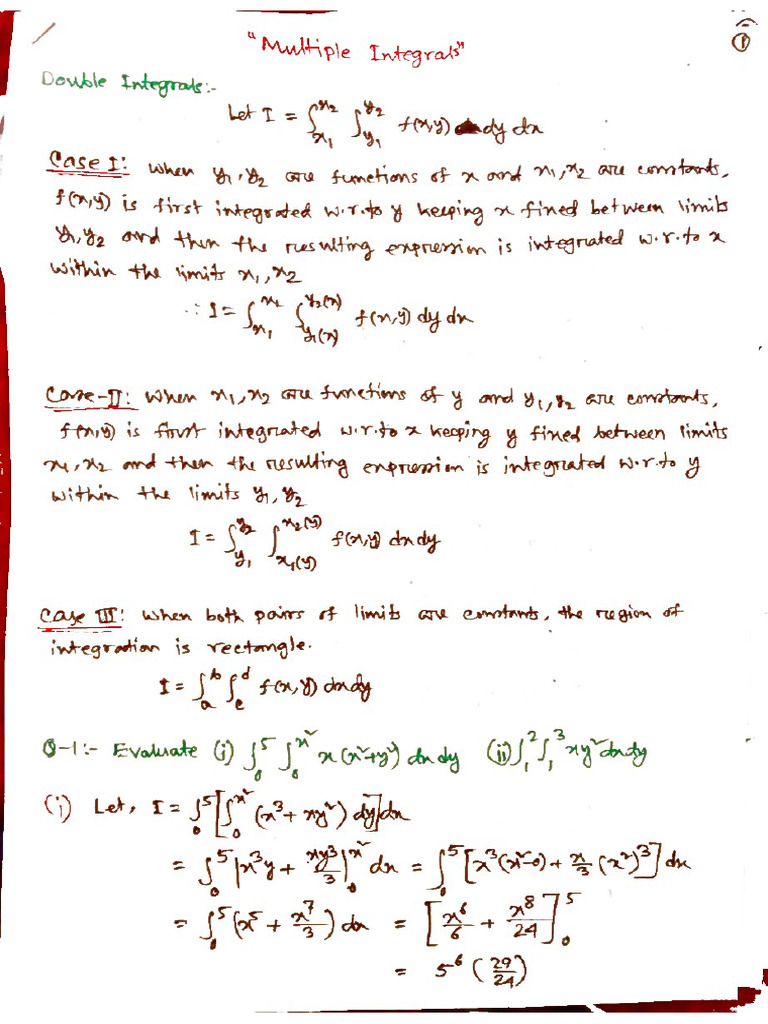 "Multiple Integrals"
1
Double Integrals:-
Let I = ∫_{x₁}^{x₂} ∫_{y₁}^{y₂} f(x,y) dy dx
Case I: When y₁, y₂ are functions of x and x₁, x₂ are constants,
f(x,y) is first integrated w.r.to y keeping x fixed between limits
y₁, y₂ and then the resulting expression is integrated w.r.to x
within the limits x₁, x₂
∴ I = ∫_{x₁}^{x₂} ∫_{y₁(x)}^{y₂(x)} f(x,y) dy dx
Case-II: When x₁, x₂ are functions of y and y₁, y₂ are constants,
f(x,y) is first integrated w.r.to x keeping y fixed between limits
x₁, x₂ and then the resulting expression is integrated w.r.to y
within the limits y₁, y₂
I = ∫_{y₁}^{y₂} ∫_{x₁(y)}^{x₂(y)} f(x,y) dx dy
Case III: When both pairs of limits are constants, the region of
integration is rectangle.
I = ∫_a^b ∫_c^d f(x,y) dx dy
Q-1:- Evaluate (i) ∫_0^5 ∫_0^{x²} x(x²+y²) dx dy (ii) ∫_1^2 ∫_1^3 xy² dx dy
(i) Let, I = ∫_0^5 [∫_0^{x²} (x³ + xy²) dy] dx
= ∫_0^5 |x³y + xy³/3|_0^{x²} dx = ∫_0^5 [x³(x²-0) + x/3 (x²)³] dx
= ∫_0^5 (x⁵ + x⁷/3) dx = [x⁶/6 + x⁸/24]_0^5
= 5⁶ (29/24)